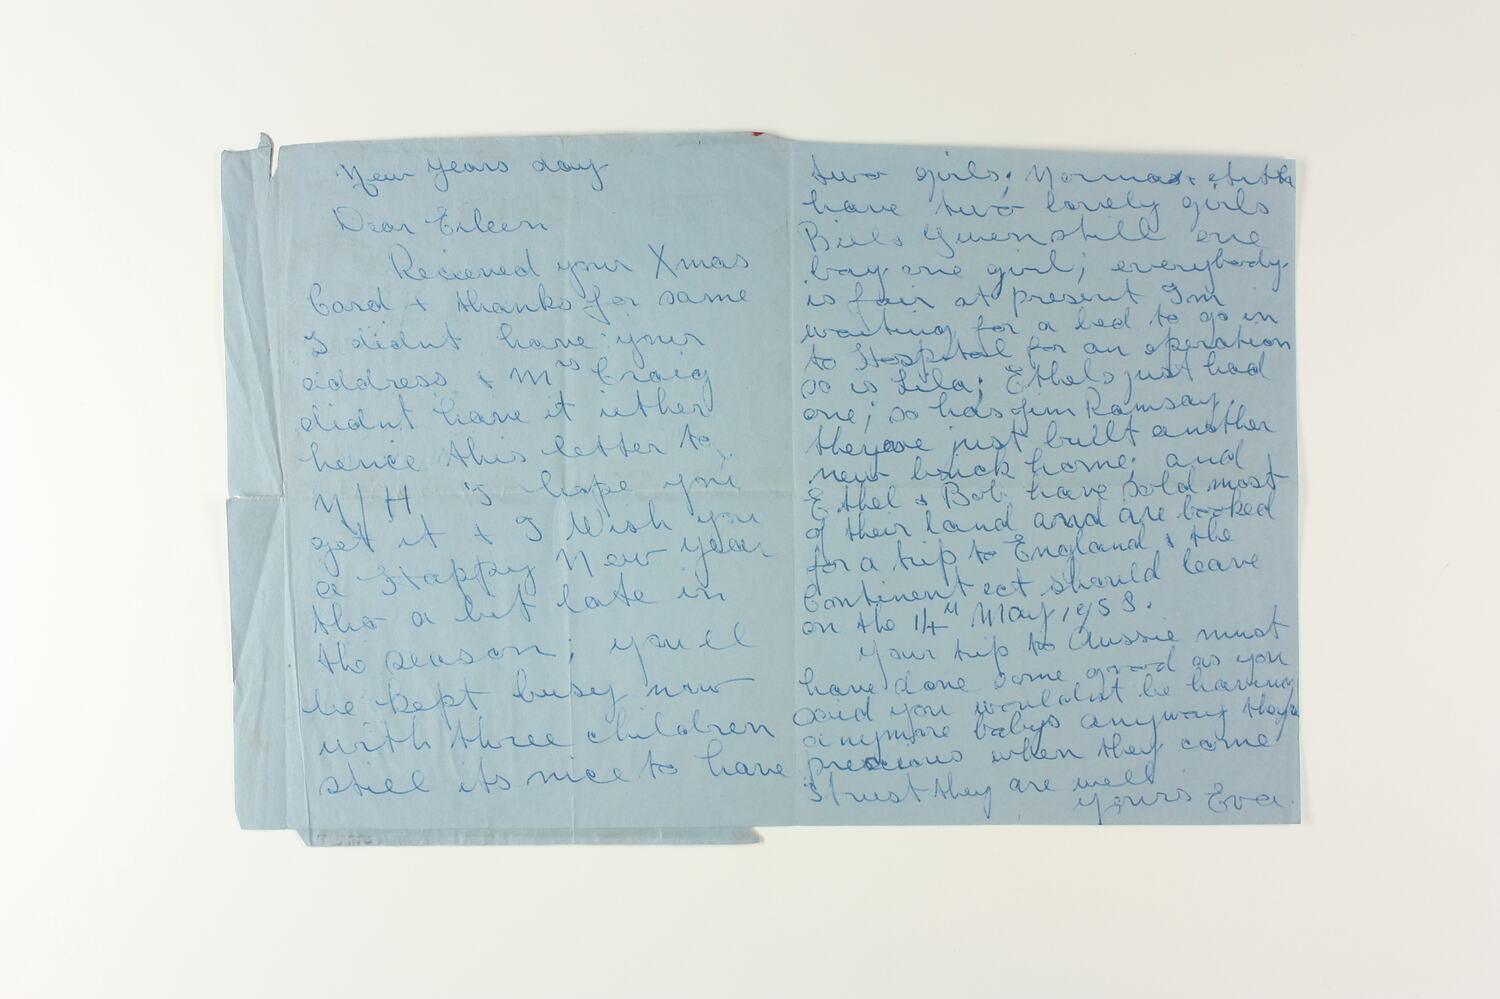 New Years day
Dear Eileen
Recieved your Xmas
Card + thanks for same
I didnt have your
address + Mrs Craig
didnt have it iether
hence this letter to
N/H I hope you
get it + I Wish you
a Happy New year
tho a bit late in
the season; you'll
be kept busy now
with three children
still its nice to have
two girls; Norma +
have two lovely girls
Bill + Gwen still one
boy one girl; everybody
is fair at present I'm
waiting for a bed to go in
to Hospital for an operation
so is Lila; Ethels just had
one; so has Jim Ramsay.
they've just built another
new brick home; and
Ethel + Bob have sold most
of their land and are booked
for a trip to England + the
Continent ect should leave
on the 14th May 1958.
Your trip to Aussie must
have done some good as you
said you wouldnt be having
anymore babys anyway they're
precious when they come
I trust they are well
Yours Eva.